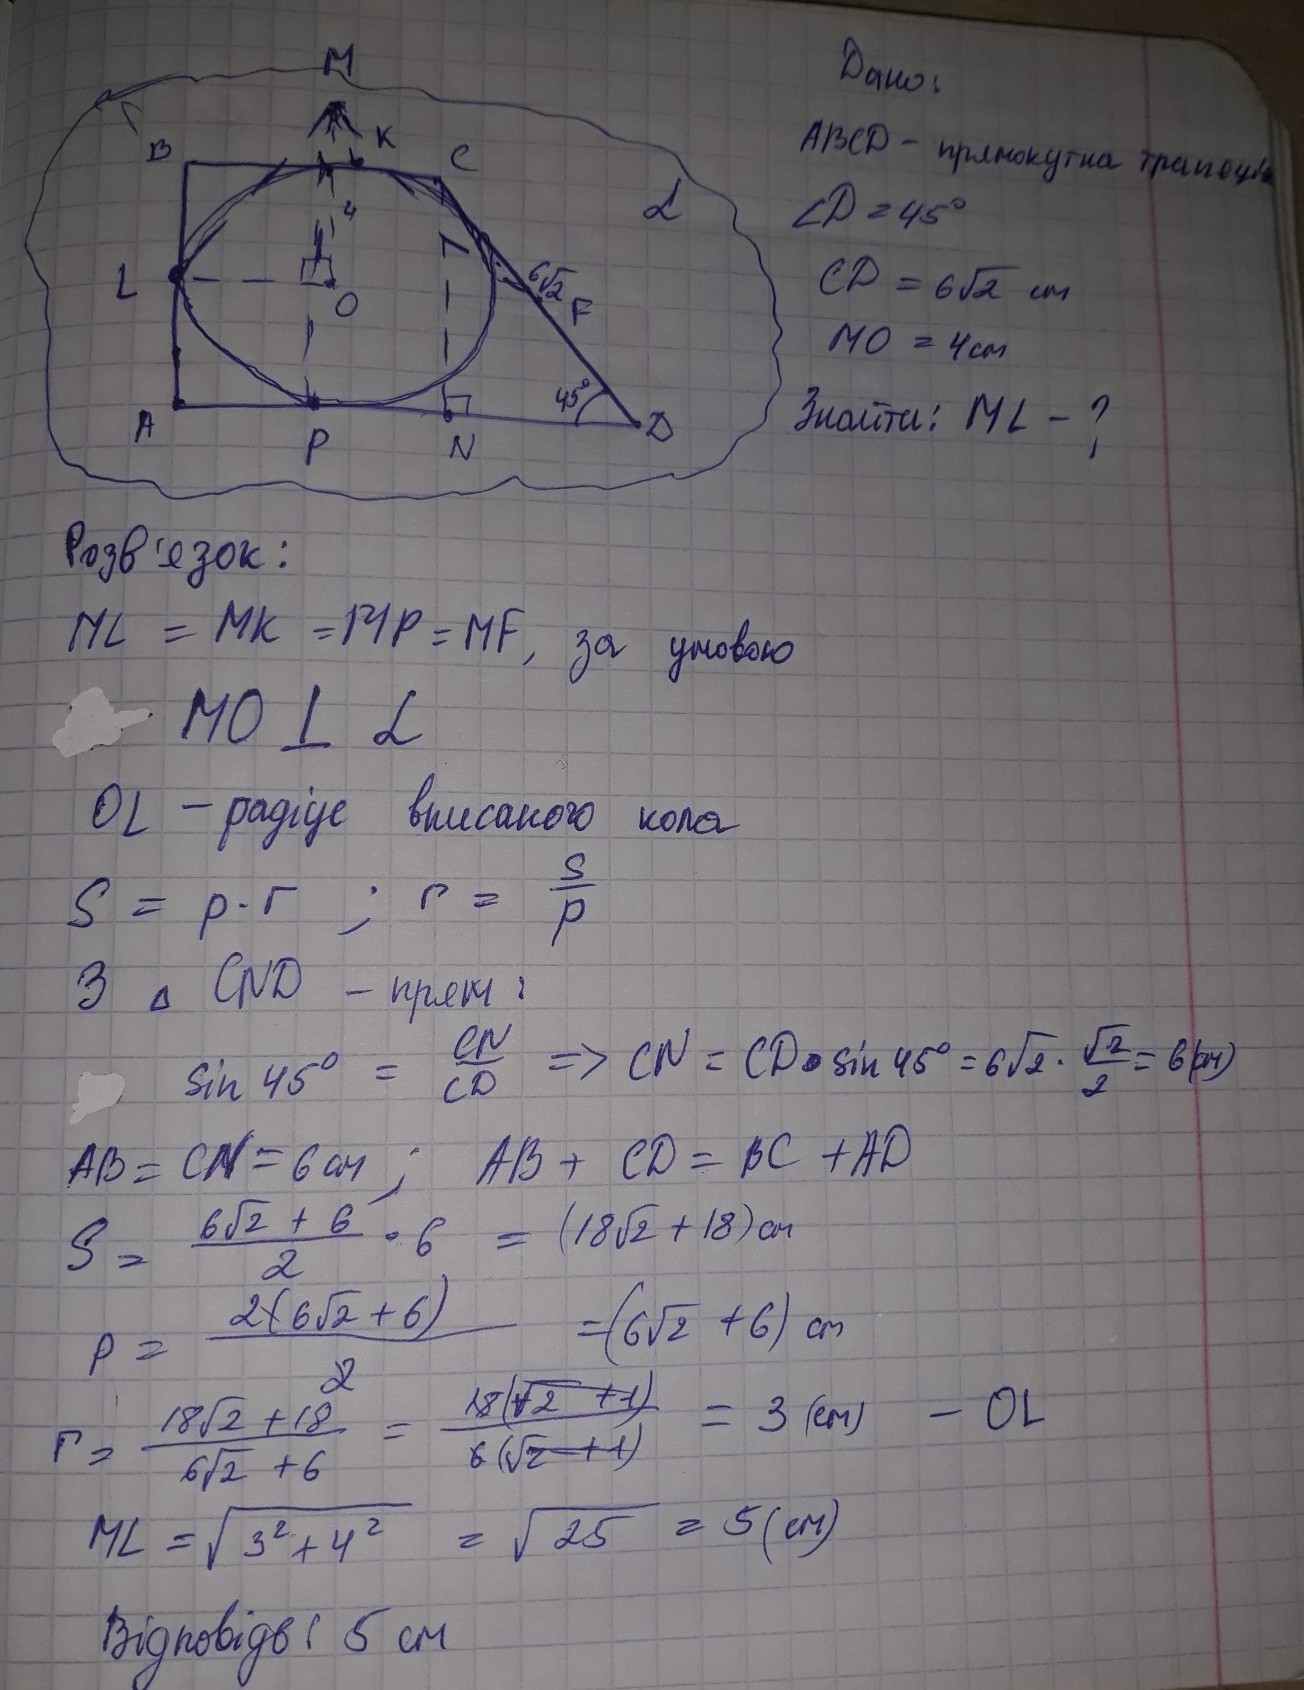 M
B
K
C
4
L
O
6√2
F
α
45°
A
P
N
D
Дано:
ABCD - прямокутна трапеція
∠D = 45°
CD = 6√2 см
MO = 4см
Знайти: ML - ?
Розв'язок:
ML = MK = MP = MF, за умовою
MO ⊥ α
OL - радіус вписаного кола
S = p·r ; r = S/p
З △ CND - прям:
sin 45° = CN/CD => CN = CD • sin 45° = 6√2 · √2/2 = 6(см)
AB = CN = 6 см ; AB + CD = BC + AD
S = (6√2 + 6)/2 · 6 = (18√2 + 18) см
p = 2(6√2 + 6)/2 = (6√2 + 6) см
r = (18√2 + 18)/(6√2 + 6) = 18(√2 + 1)/6(√2 + 1) = 3 (см) - OL
ML = √(3² + 4²) = √25 = 5 (см)
Відповідь: 5 см